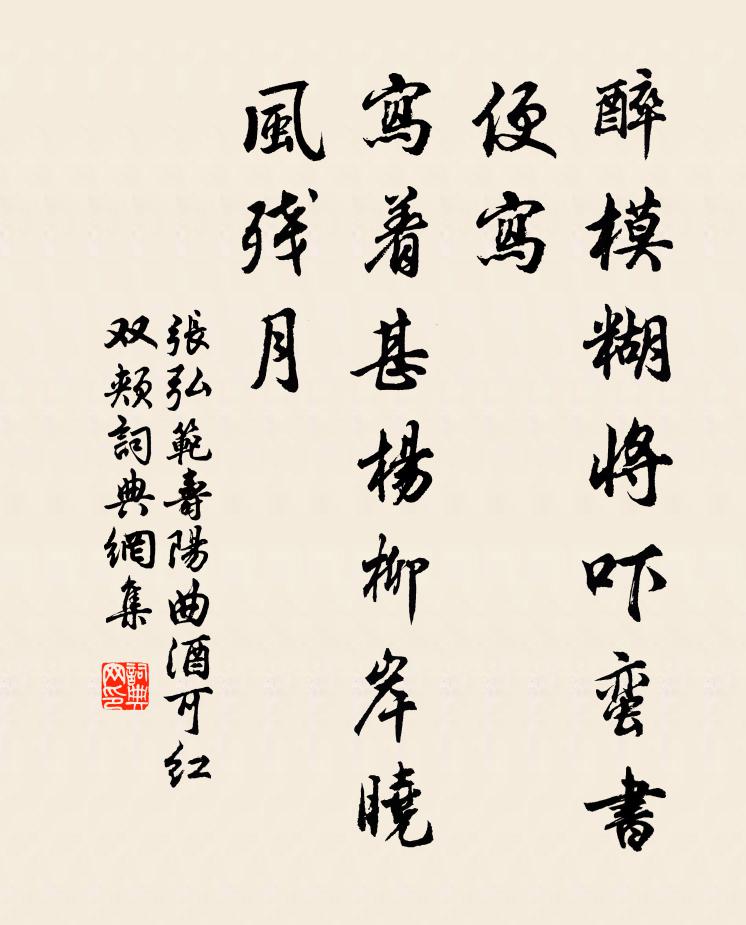 醉模糊將吓蛮書
便寫
寫着甚楊柳岸曉
風残月
張弘範壽陽曲酒可红
双頰詞典網集
詞典
网印